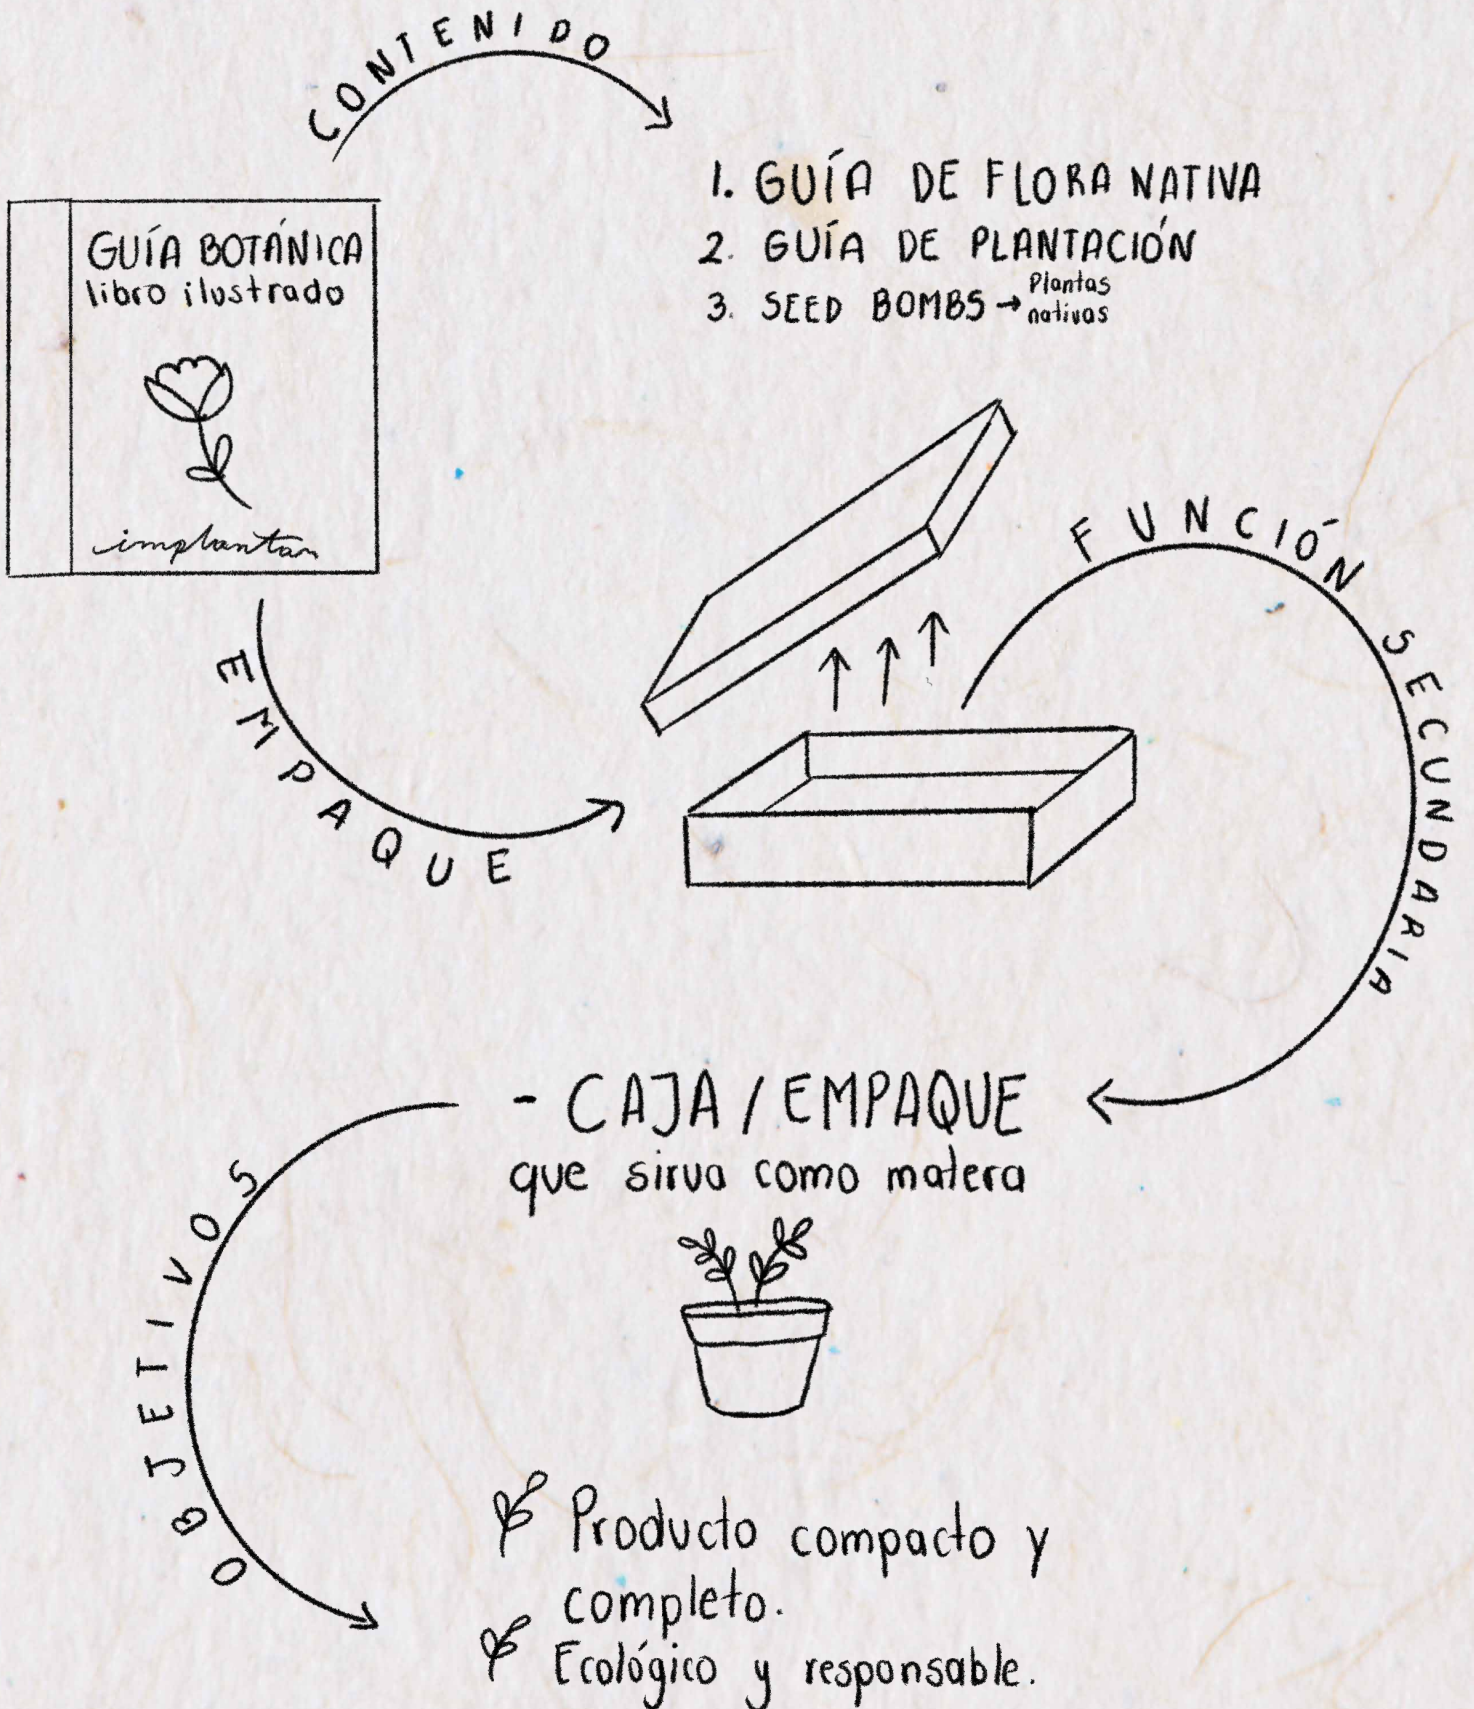 CONTENIDO
1. GUÍA DE FLORA NATIVA
2. GUÍA DE PLANTACIÓN
3. SEED BOMBS → Plantas
nativas
GUÍA BOTÁNICA
libro ilustrado
implantan
EMPAQUE
FUNCIÓN SECUNDARIA
- CAJA / EMPAQUE
que sirva como matera
OBJETIVOS
Producto compacto y
completo.
Ecológico y responsable.